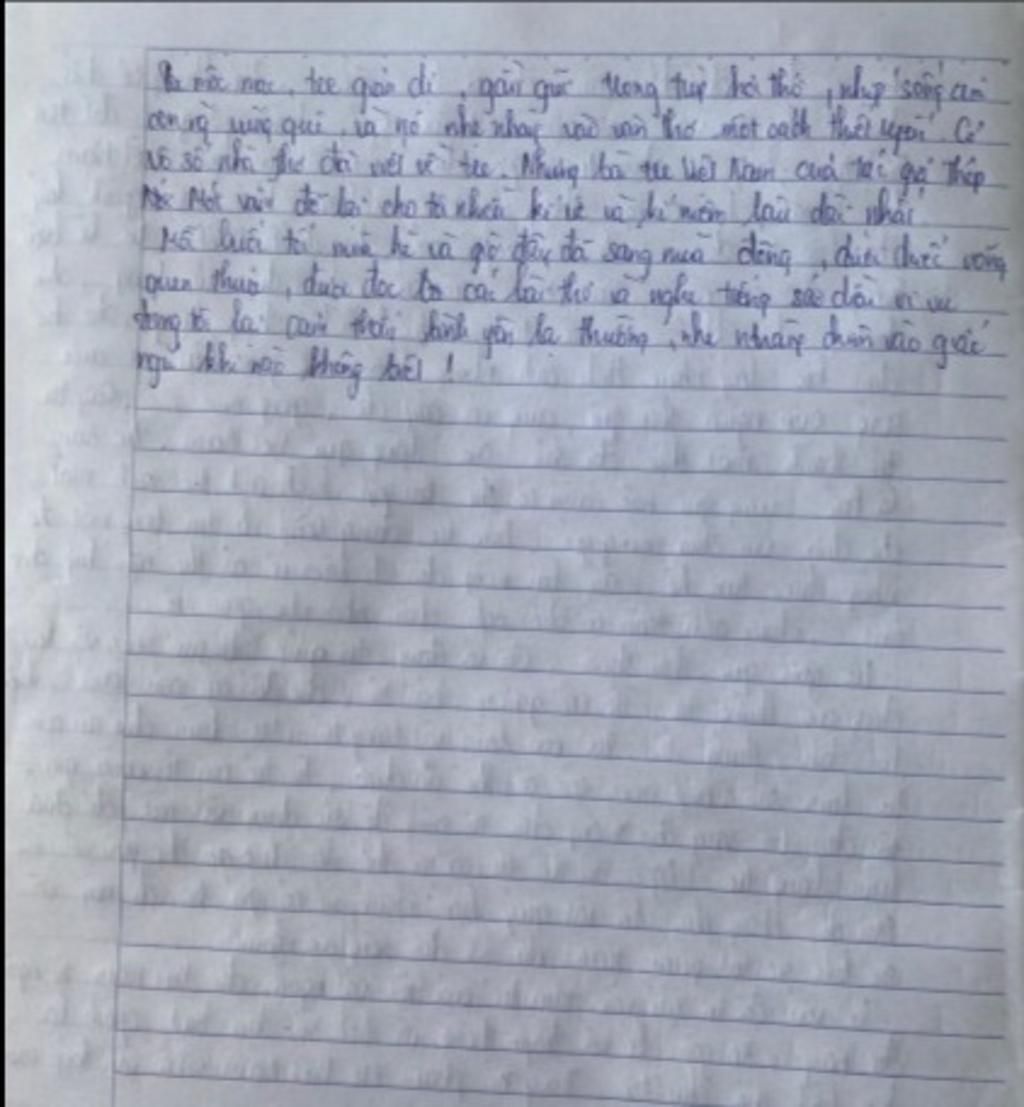 mộc mạc, tre giản dị, gần gũi trong từng hơi thở, nhịp sống của
làng quê, và nó nhẹ nhàng vào vần thơ một cách thật Có
vô số nhà thơ đã viết về tre. Nhưng bài tre Việt Nam của tác giả thép
Mới vẫn để lại cho tôi nhiều kí và kỉ niệm lâu dài nhất
tôi mùa hè và giờ đây đã sang mùa đông, chiếc võng
quen thuộc, được đọc cái bài thơ và nghe tiếng sáo diều vi vu
lòng tôi lại cảm thấy bình yên lạ thường, nhẹ nhàng chìm vào giấc
ngủ khi nào không biết !